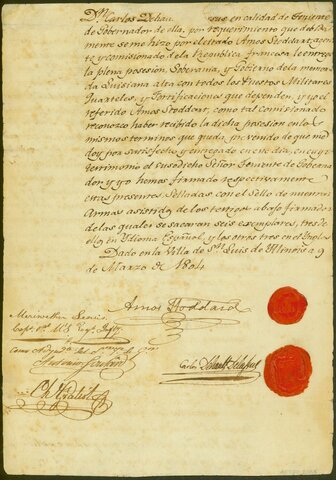 Dn. Carlos Dehau suso en calidad de Teniente
de Gobernador de ella, por requerimiento que debida
mente se me hizo por el citado Amos Stoddart, agente
y comisionado de la Republica francesa le entregué
la plena posesion, Soberania, y Gobierno de la mencio
nada Luisiana alta con todos los Puestos Militares
Quarteles, y Fortificaciones que dependen, y yo el
referido Amos Stoddart, como tal Comisionado
reconozco haber recibido la dicha posesion en los
mismos terminos que queda prevenido de que me
doy por satisfecho y entregado en este dia, en cuyo
testimonio el susodicho Señor Teniente de Goberna
dor y yo hemos firmado respectivamente
estas presentes, Selladas con el Sello de nuestras
Armas asistidos de los testigos abajo firmados
de las quales se sacaran seis exemplares, tres de
ellos en Idioma Español y los otros tres en el Ingles
Dado en la Villa de Sn. Luis de Ylinois a 9
de Marzo de 1804
Amos Stoddard
Meriwether Lewis
Capt. 1st. U.S. Regt. Infty.
Como Adjudte
Antonio Soulard
Carlos Dehault Delassus
Ch Gratiot